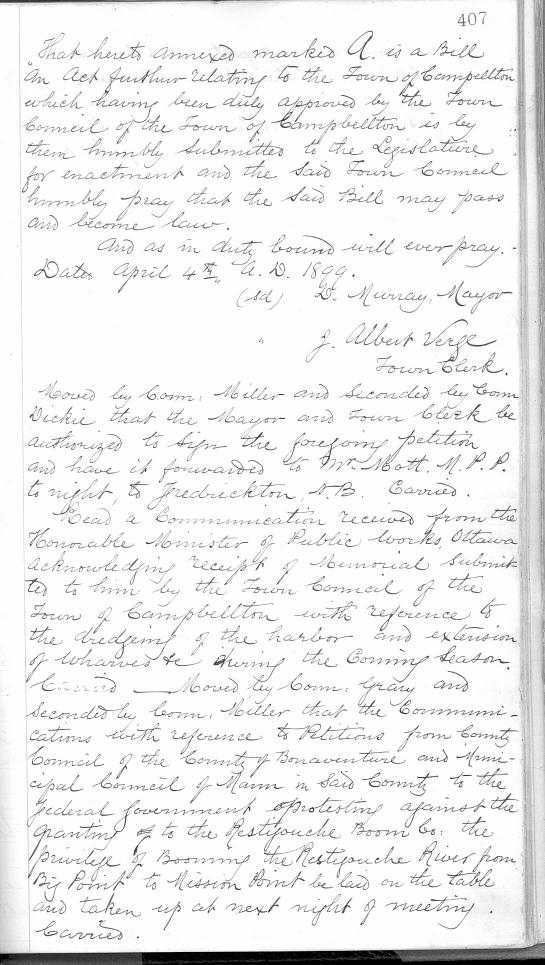 407
"That hereto annexed marked A. is a Bill
An Act further relating to the Town of Campellton
which having been duly approved by the Town
Council of the Town of Campbellton is by
them humbly submitted to the Legislature
for enactment and the said Town Council
humbly pray that the said Bill may pass
and become law.
And as in duty bound will ever pray.
Dated April 4th A.D. 1899.
(sd) D. Murray, Mayor
" J. Albert Verge
Town Clerk.
Moved by Conn: Miller and Seconded by Conn
Dickie that the Mayor and Town Clerk be
authorized to sign the foregoing petition
and have it forwarded to Mr. Mott, M.P.P.
to night, to Fredrickton, N.B. Carried.
Read a Communication received from the
Honorable Minister of Public Works, Ottawa
acknowledging receipt of Memorial submit-
ted to him by the Town Council of the
Town of Campbellton with reference to
the dredging of the harbor and extension
of wharves &c during the Coming Season.
Carried — Moved by Conn: Grary and
Seconded by Conn: Miller that the Communi-
cations with reference to Petitions from County
Council of the County of Bonaventure and Muni-
cipal Council of Mann in said County to the
Federal Government protesting against the
granting of to the Restigouche Boom Co: the
privilege of Booming the Restigouche River from
Big Point to Mission Point be laid on the table
and taken up at next night of meeting.
Carried.